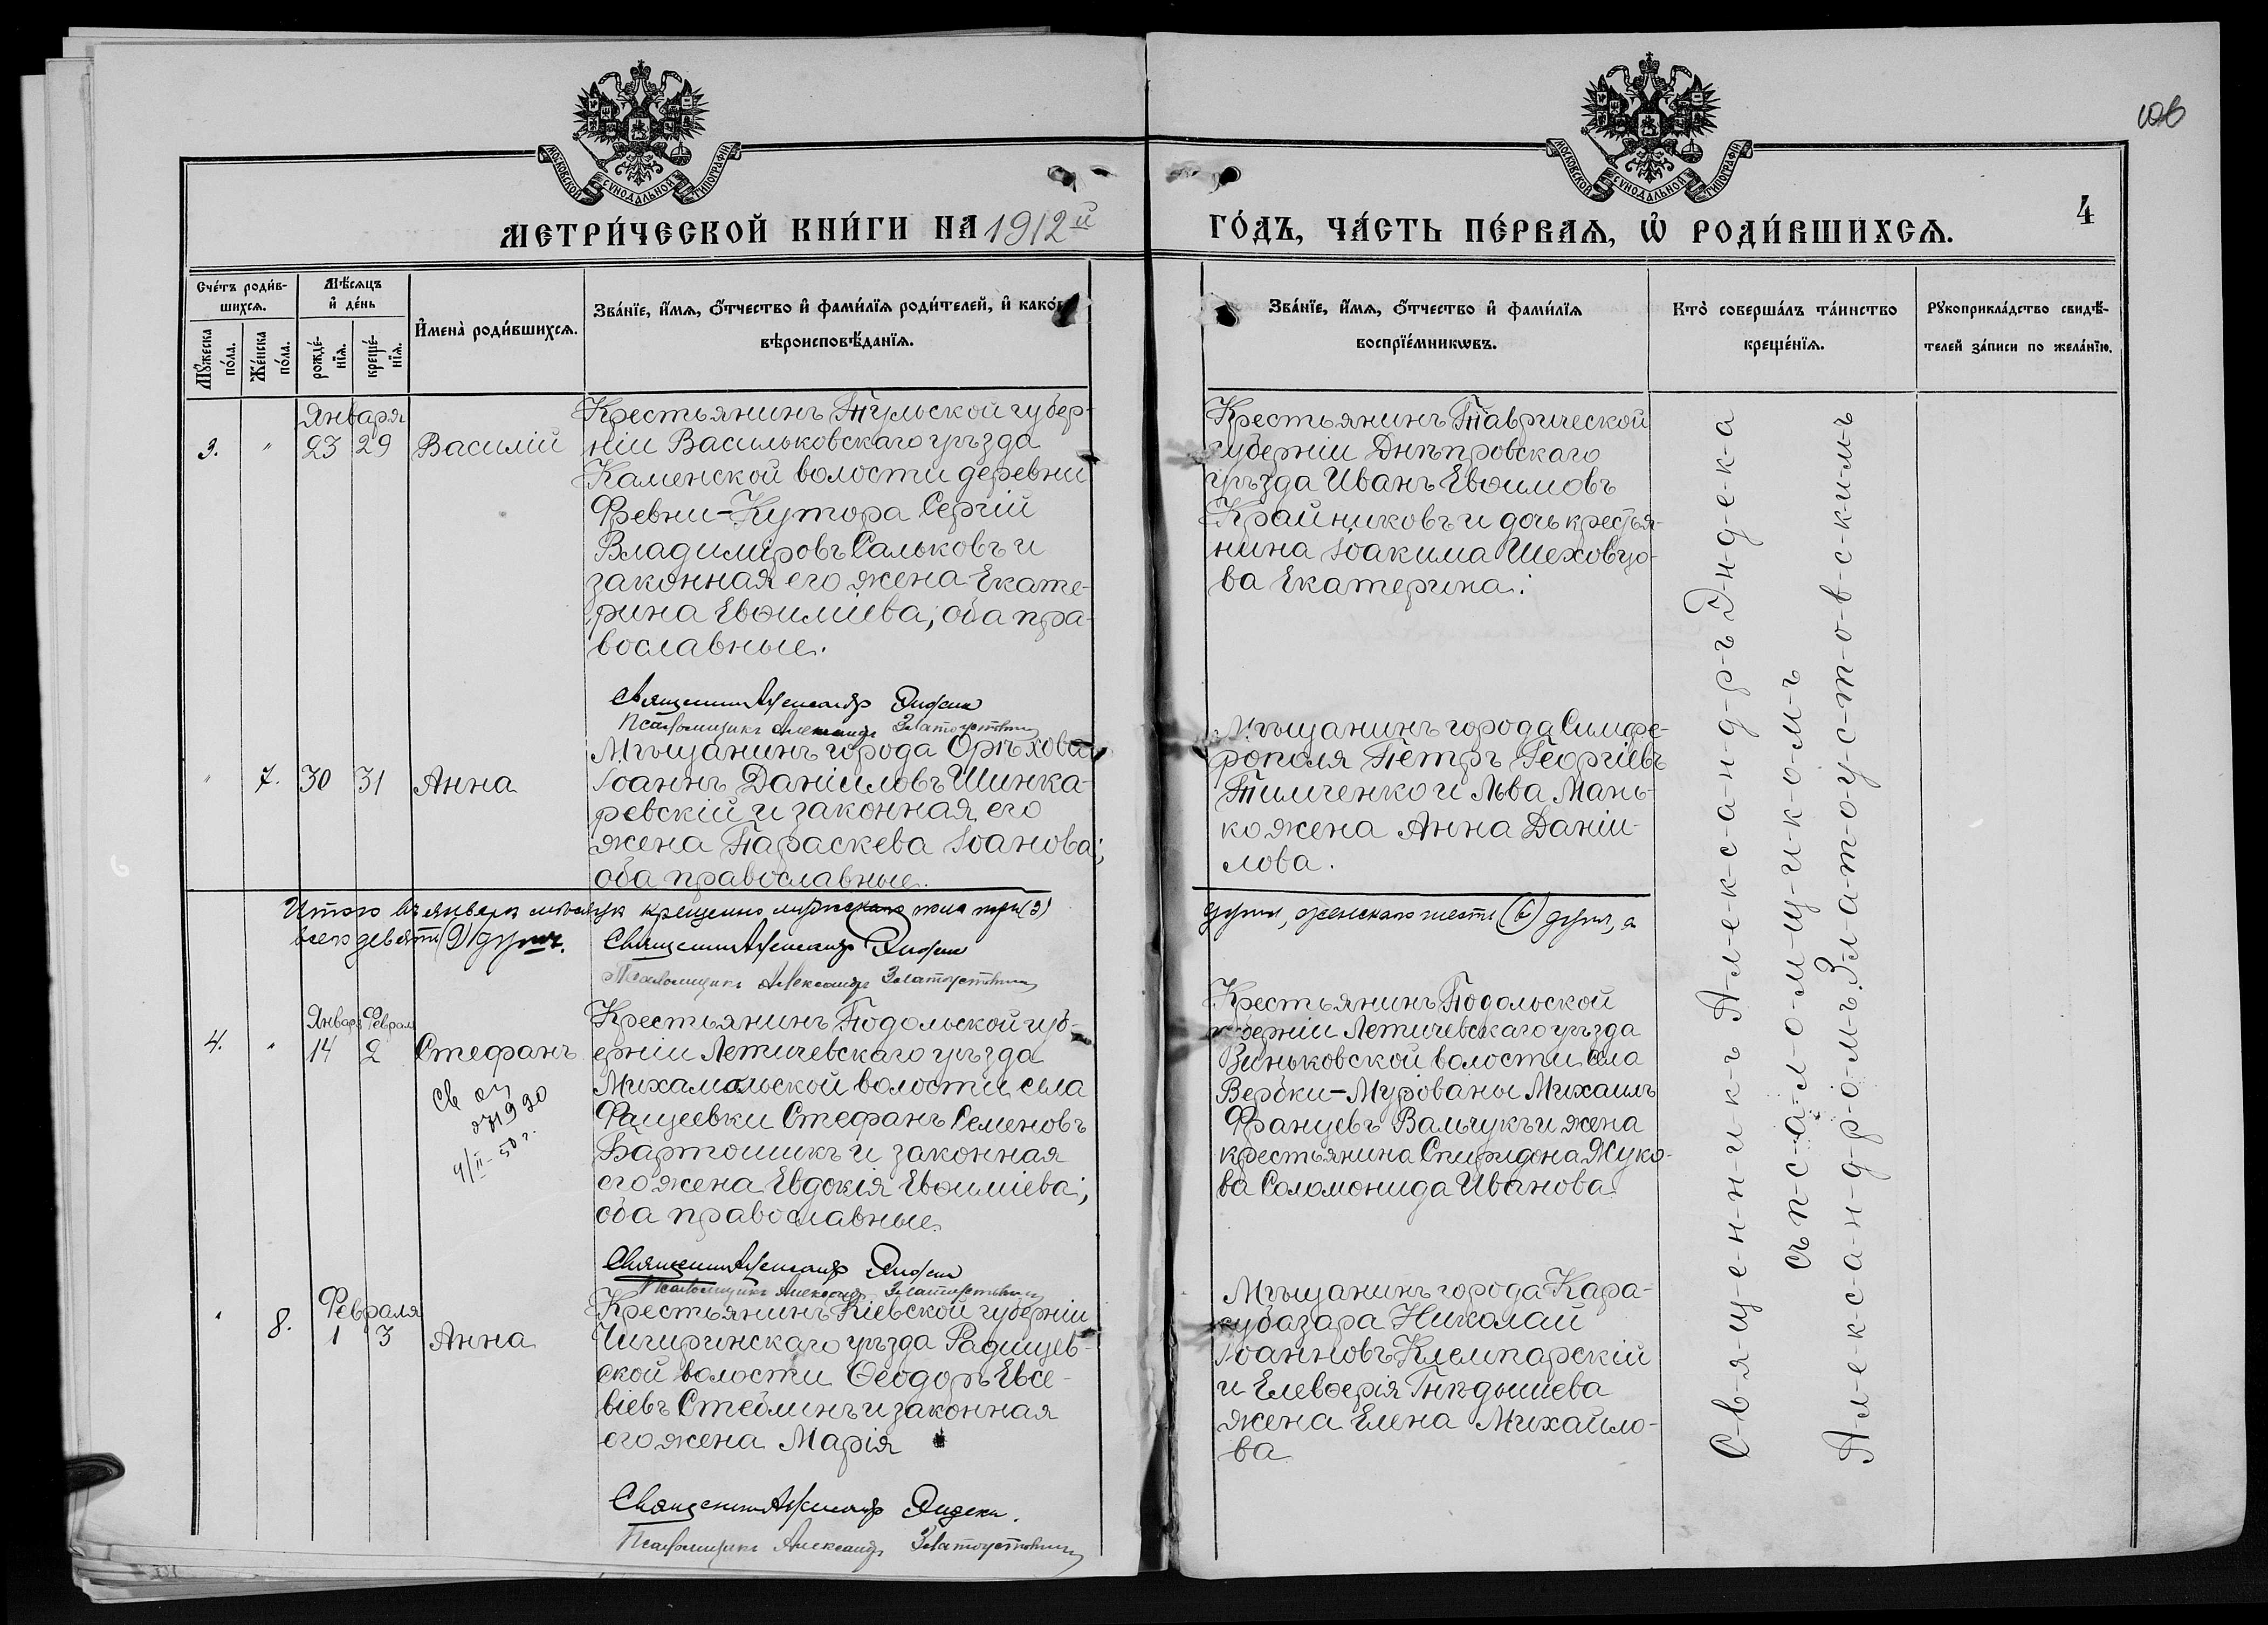 106
МОСКОВСКОЙ СѴНОДАЛЬНОЙ ТИПОГРАФІИ
МОСКОВСКОЙ СѴНОДАЛЬНОЙ ТИПОГРАФІИ
МЕТРИ́ЧЕСКОЙ КНИ́ГИ НА 1912й
ГО́ДЪ, ЧА́СТЬ ПЕ́РВАѦ, Ѡ҆ РОДИ́ВШИХСѦ.
4
Сче́тъ роди́в-
шихсѧ.
Мꙋ́жеска по́ла.
Же́нска по́ла.
Мѣ́сѧцъ
и҆ де́нь
рожде́-нїѧ.
креще́-нїѧ.
И҆мена̀ роди́вшихсѧ.
Зва́нїе, и҆́мѧ, ѻ҆́тчество и҆ фами́лїѧ роди́телей, и҆ како́в
вѣроисповѣ́данїѧ.
Зва́нїе, и҆́мѧ, ѻ҆́тчество и҆ фами́лїѧ
воспрїе́мникѡвъ.
Кто̀ соверша́лъ та́инство
креще́нїѧ.
Рꙋкоприкла́дство свидѣ́-
телей за́писи по жела́нїю.
Января
3. " 23 29 Василій
Крестьянинъ Тульской губер-
ніи Васильковскаго уѣзда
Каменской волости деревни
Февни-Кутора Сергій
Владиміровъ Сальковъ и
законная его жена Екате-
рина Евѳиміева, оба пра-
вославные.
Священникъ Александр
Псаломщикъ Александр Златоустовскій
Крестьянинъ Таврической
губерніи Днѣпровскаго
уѣзда Иванъ Евѳимовъ
Крайниковъ и дочь крестья-
нина Іоакима Шеховцо-
ва Екатерина.
" 7. 30 31 Анна
Мѣщанинъ города Орѣхова
Іоаннъ Даніиловъ Шинка-
ревскій и законная его
жена Параскева Іоанова;
оба православные.
Мѣщанинъ города Симфе-
рополя Петръ Георгіевъ
Тимченко и Льва Мань-
ко жена Анна Даніи-
лова.
Итого въ январѣ мѣсяцѣ крещено мужскаго пола три (3)
душ, женскаго шести (6) душ, а
всего девяти (9) душъ.
Священникъ Александр
Псаломщикъ Александр Златоустовскій
Январь Феврал
4. " 14 2 Стефанъ
4/II-50 г.
Крестьянинъ Подольской губ-
ерніи Летичевскаго уѣзда
Михампольской волости села
Фащеевки Стефанъ Семеновъ
Бартошикъ и законная
его жена Евдокія Евѳиміева;
оба православные
Священникъ Александр
Псаломщикъ Александр Златоустовскій
Крестьянинъ Подольской
губерніи Летичевскаго уѣзда
Зиньковской волости села
Вербки-Мурованы Михаилъ
Францевъ Вальчукъ и жена
крестьянина Спиридона Жуко-
ва Соломонида Иванова
Февраля
" 8. 1 3 Анна
Крестьянинъ Кіевской губерніи
Чигиринскаго уѣзда Радищев-
ской волости Ѳеодоръ Евсе-
віевъ Стеблинъ и законная
его жена Марія
Священникъ Александр
Псаломщикъ Александр Златоустовскій
Мѣщанинъ города Кара-
субазара Николай
Іоанновъ Клемпарскій
и Елевѳерія Гнѣдышева
жена Елена Михайло-
ва
С-в-я-щ-е-н-н-и-к-ъ А-л-е-к-с-а-н-д-р-ъ Э-н-д-е-к-а
съ п-с-а-л-о-м-щ-и-к-о-м-ъ
А-л-е-к-с-а-н-д-р-о-м-ъ З-л-а-т-о-у-с-т-о-в-с-к-и-м-ъ